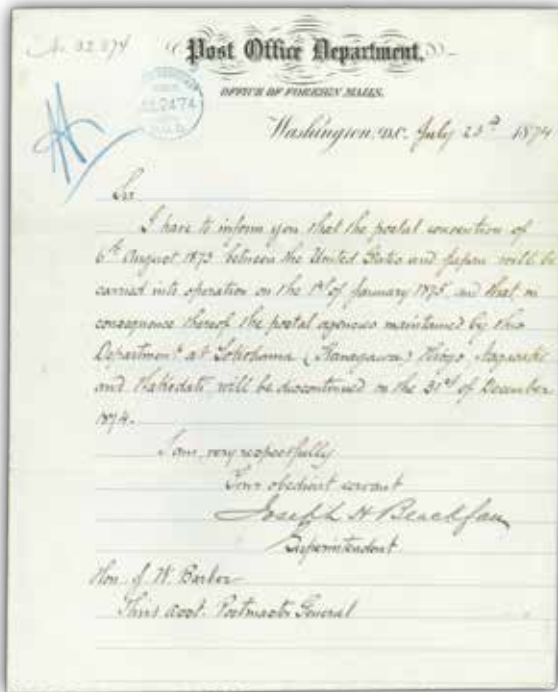 No. 32.874
Post Office Department,
OFFICE OF FOREIGN MAILS,
Washington, D.C. July 23d 1874
Sir
I have to inform you that the postal convention of
6th August 1873 between the United States and Japan will be
carried into operation on the 1st of January 1875 and that in
consequence thereof the postal agencies maintained by this
Department at Yokohama (Kanagawa) Hiogo, Nagasaki
and Hakodati will be discontinued on the 31st of December
1874.
I am, very respectfully
Your obedient servant
Joseph H Blackfan
Superintendent
Hon. J. W. Barber
Third Asst. Postmaster General